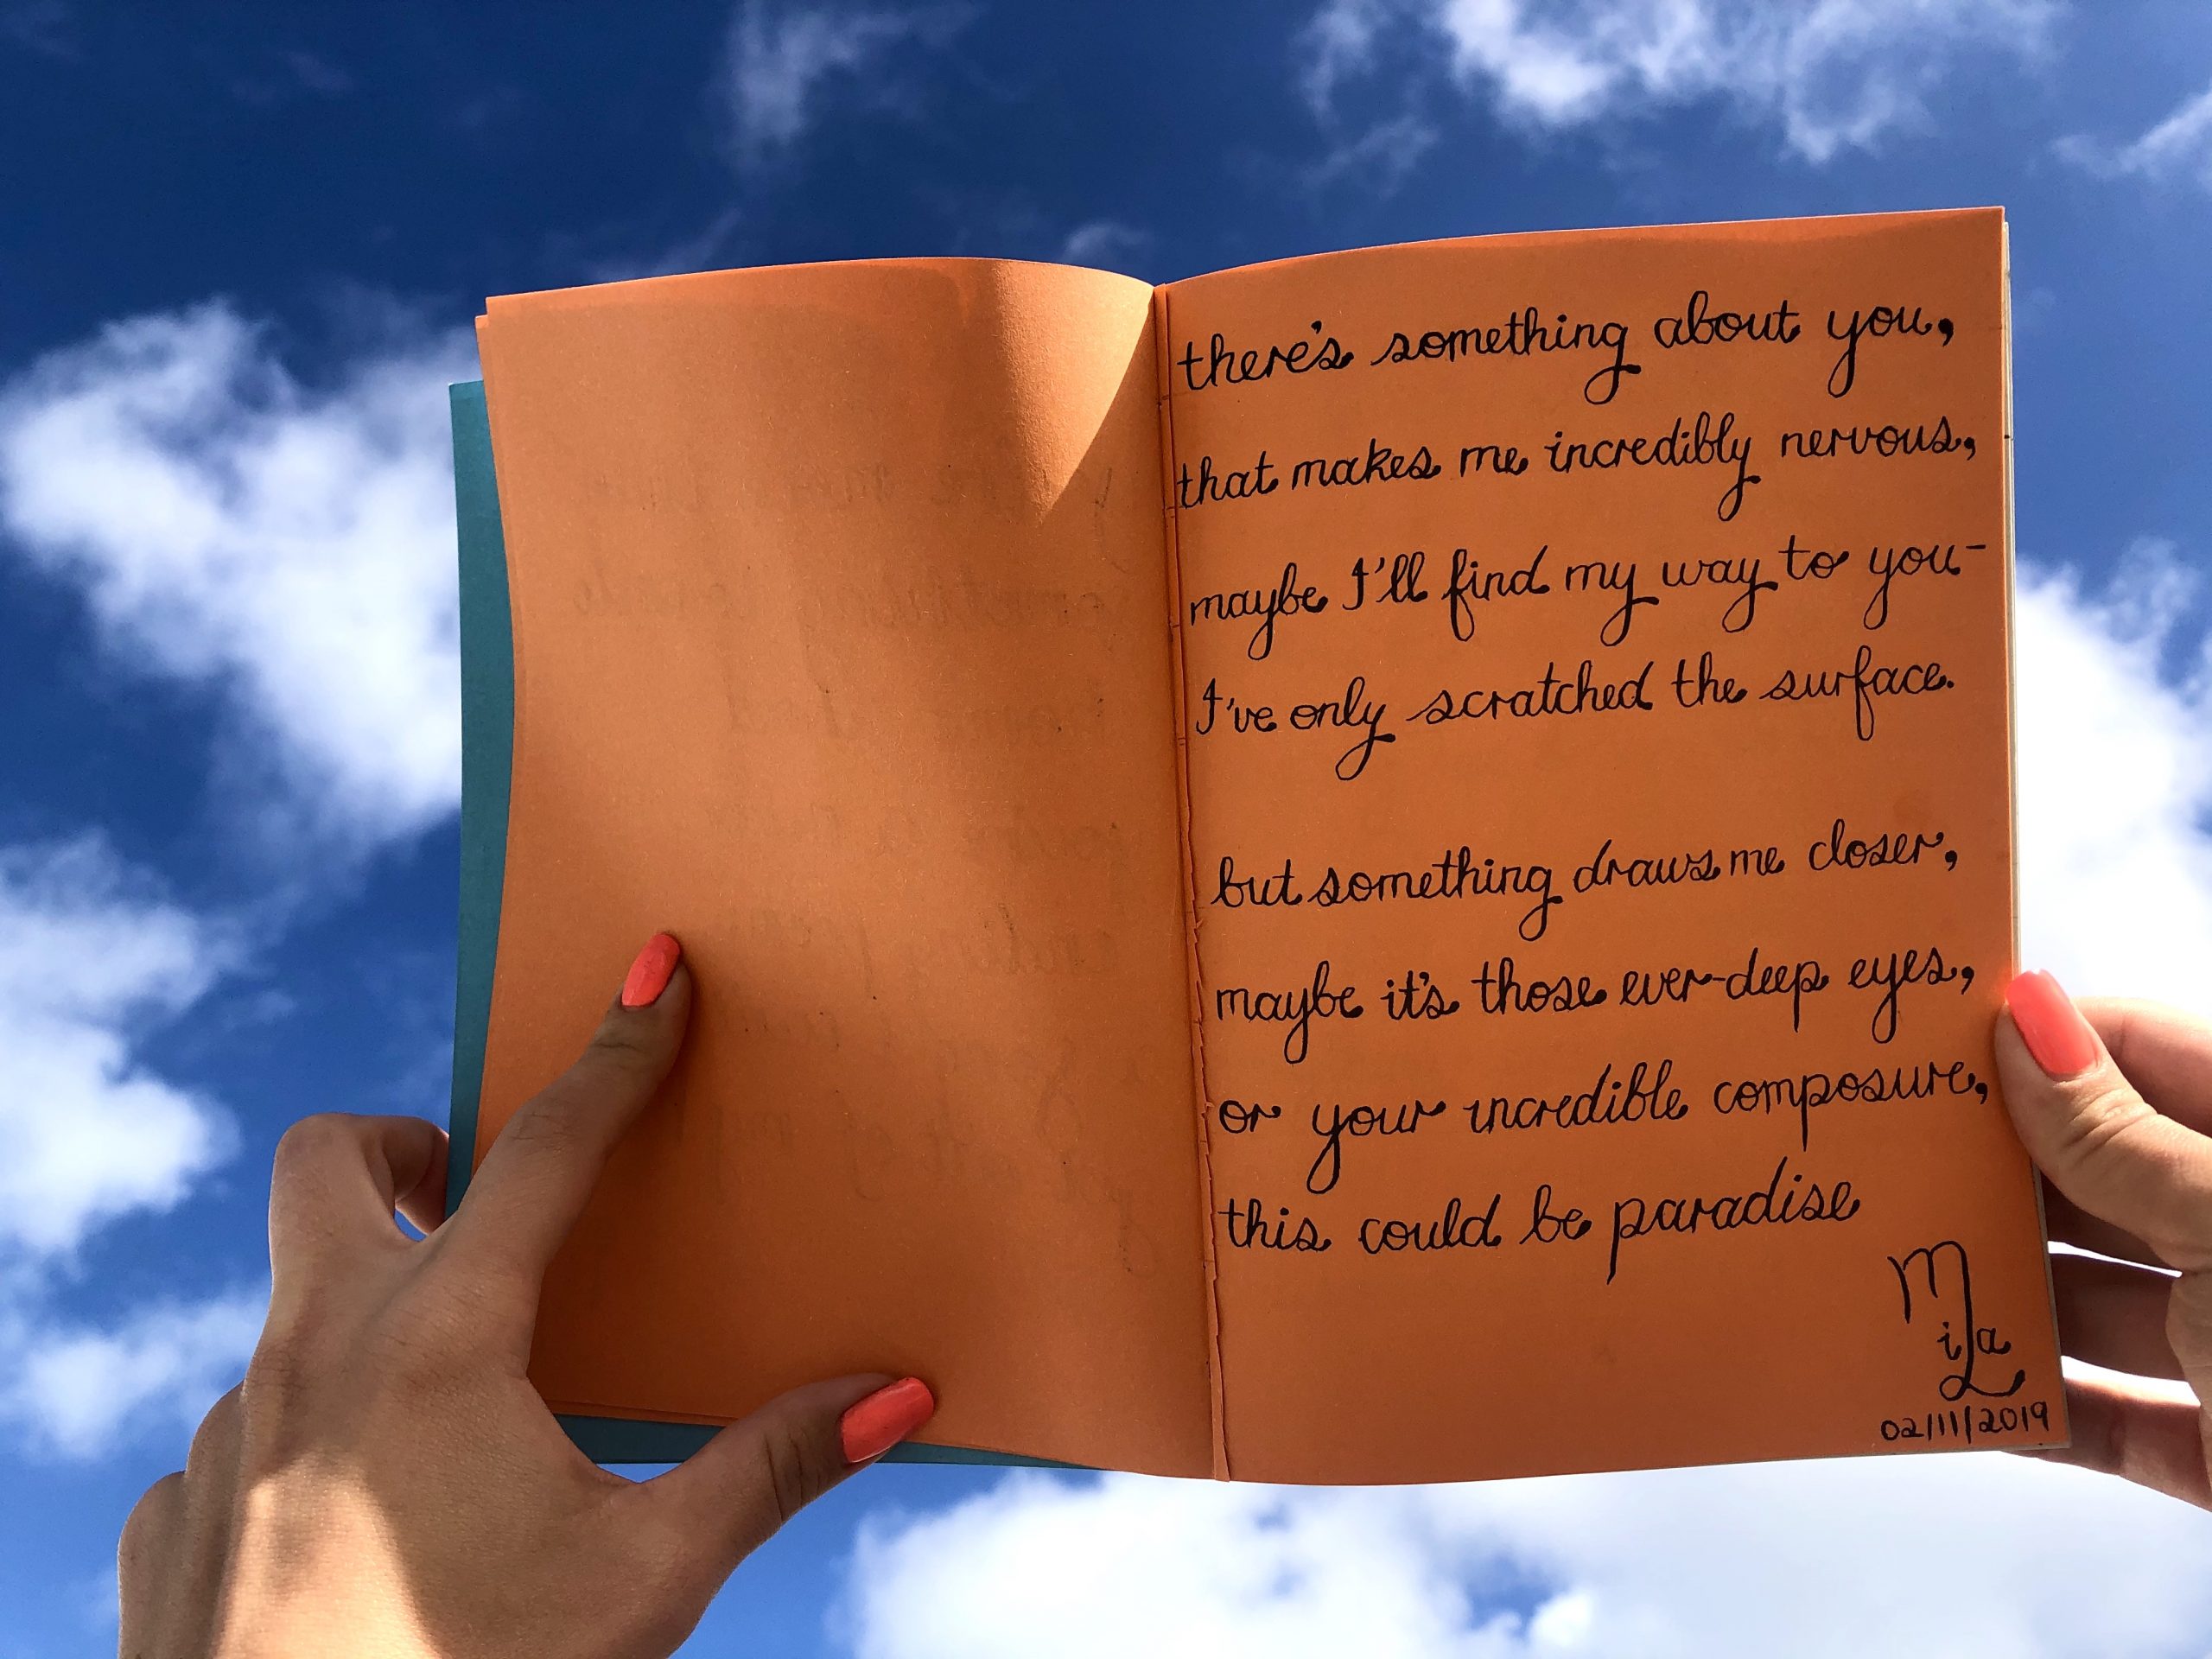 there's something about you,
that makes me incredibly nervous,
maybe I'll find my way to you-
I've only scratched the surface.
but something draws me closer,
maybe it's those ever-deep eyes,
or your incredible composure,
this could be paradise
Mila
02/11/2019